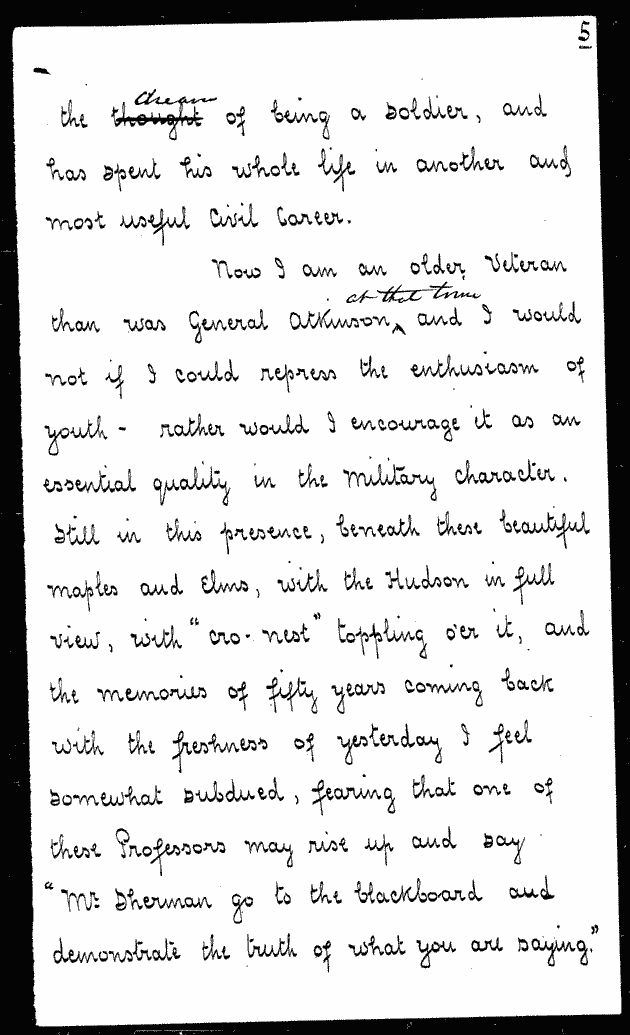 5
dream
the thought of being a soldier, and
has spent his whole life in another and
most useful Civil Career.
Now I am an older Veteran
at that time
than was General Atkinson, and I would
not if I could repress the enthusiasm of
youth - rather would I encourage it as an
essential quality in the Military character.
Still in this presence, beneath these beautiful
maples and Elms, with the Hudson in full
view, with "cro-nest" toppling o'er it, and
the memories of fifty years coming back
with the freshness of yesterday I feel
somewhat subdued, fearing that one of
these Professors may rise up and say
"Mr. Sherman go to the blackboard and
demonstrate the truth of what you are saying."